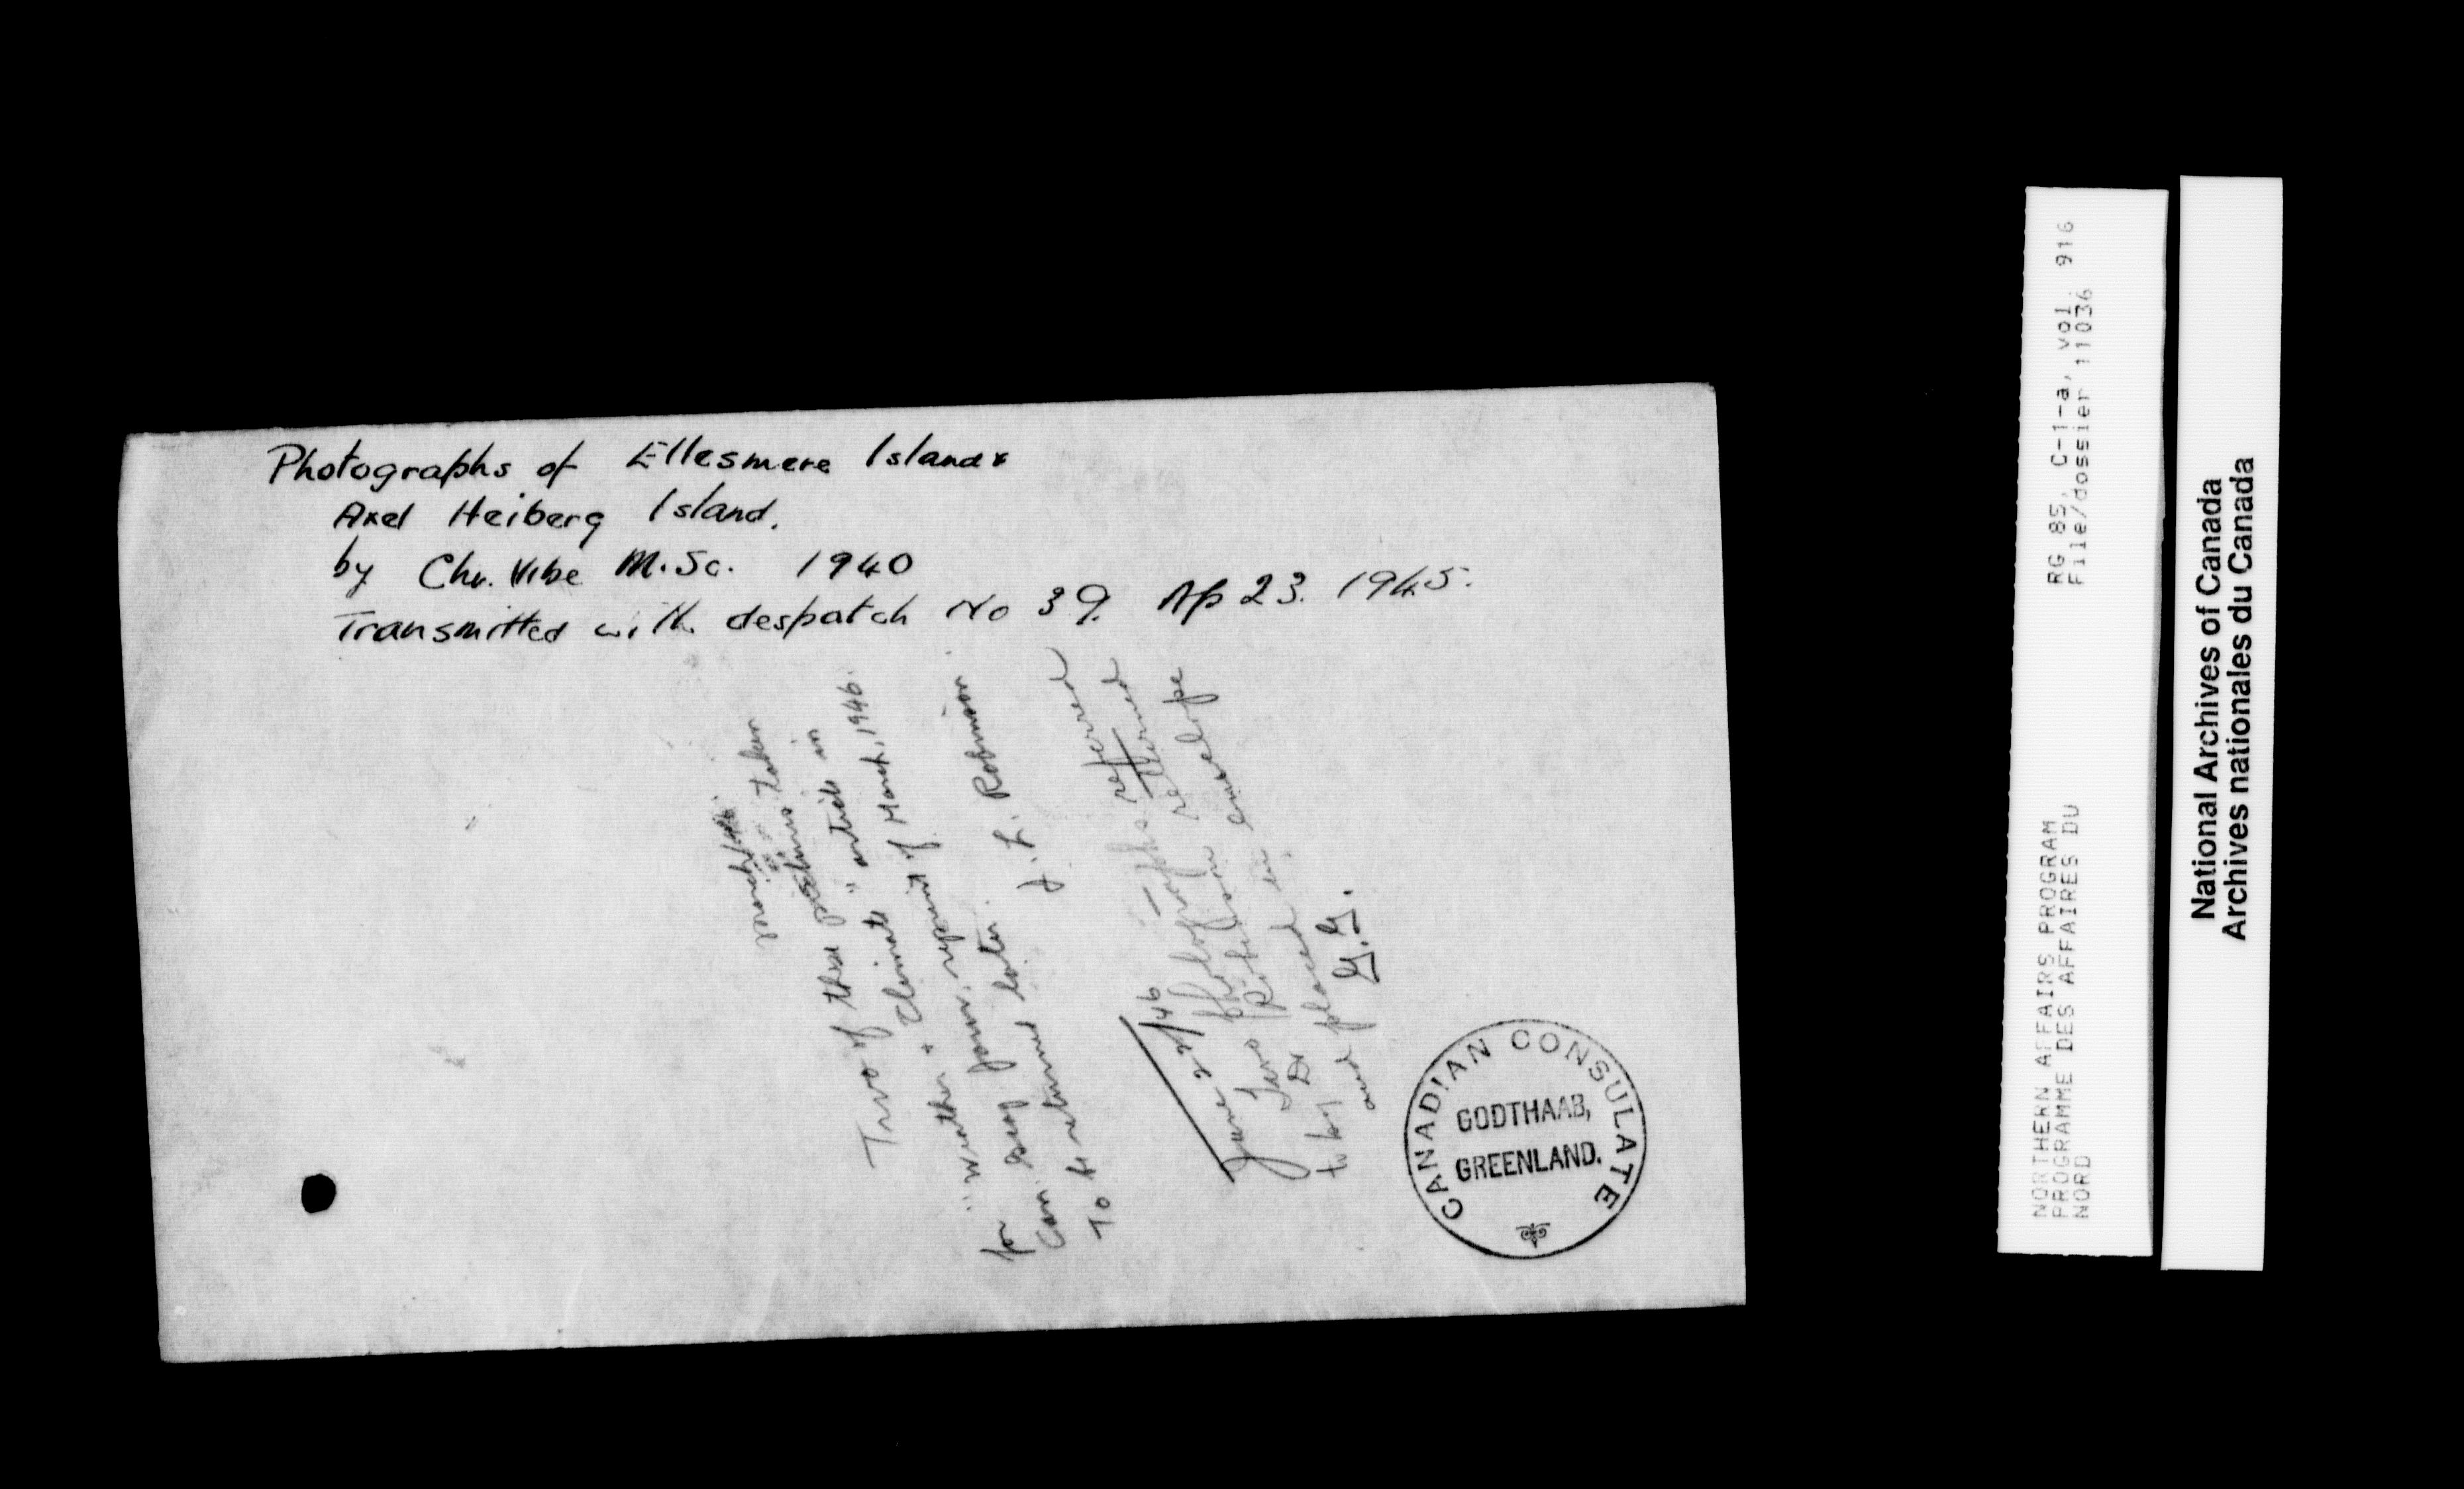 Photographs of Ellesmere Island &
Axel Heiberg Island.
by Chr. Vibe M.Sc. 1940
Transmitted with despatch No 39. Ap 23. 1945.
March/46.
Two of these pictures taken
for "Weather & Climate" article in
Can. Geog. Journ. reprint of March, 1946.
To be returned later.
J. L. Robinson
June 22/46 —
Two photographs referred
to by Dr Robinson returned
and placed in envelope
G.G.
CANADIAN CONSULATE
GODTHAAB,
GREENLAND.
RG 85, C-1-a, vol. 916
File/dossier 11036
NORTHERN AFFAIRS PROGRAM
PROGRAMME DES AFFAIRES DU
NORD
National Archives of Canada
Archives nationales du Canada